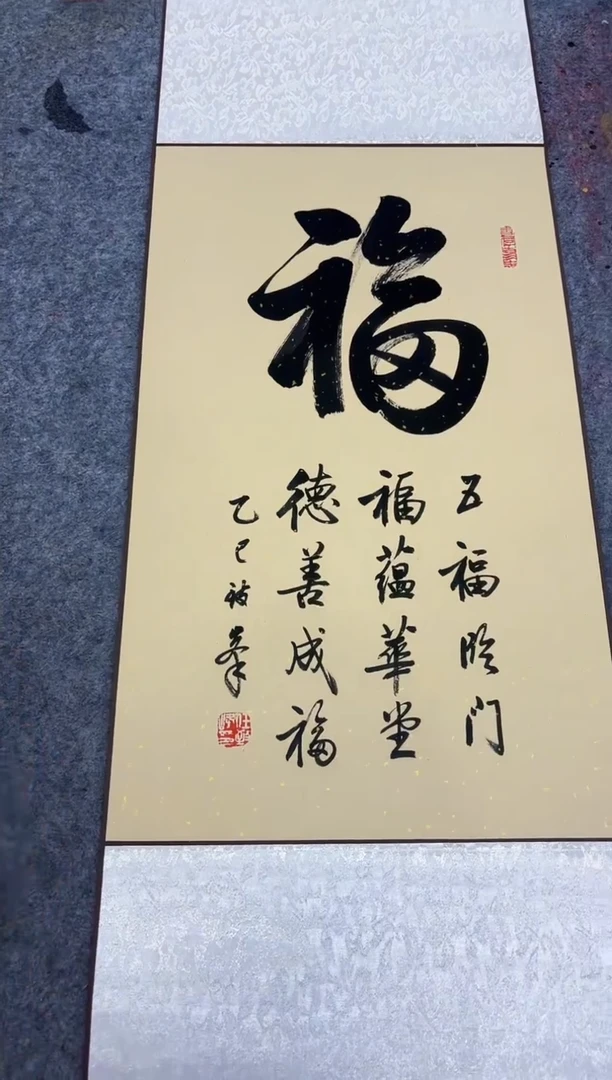 福
五福临门
福蕴华堂
德善成福
乙巳